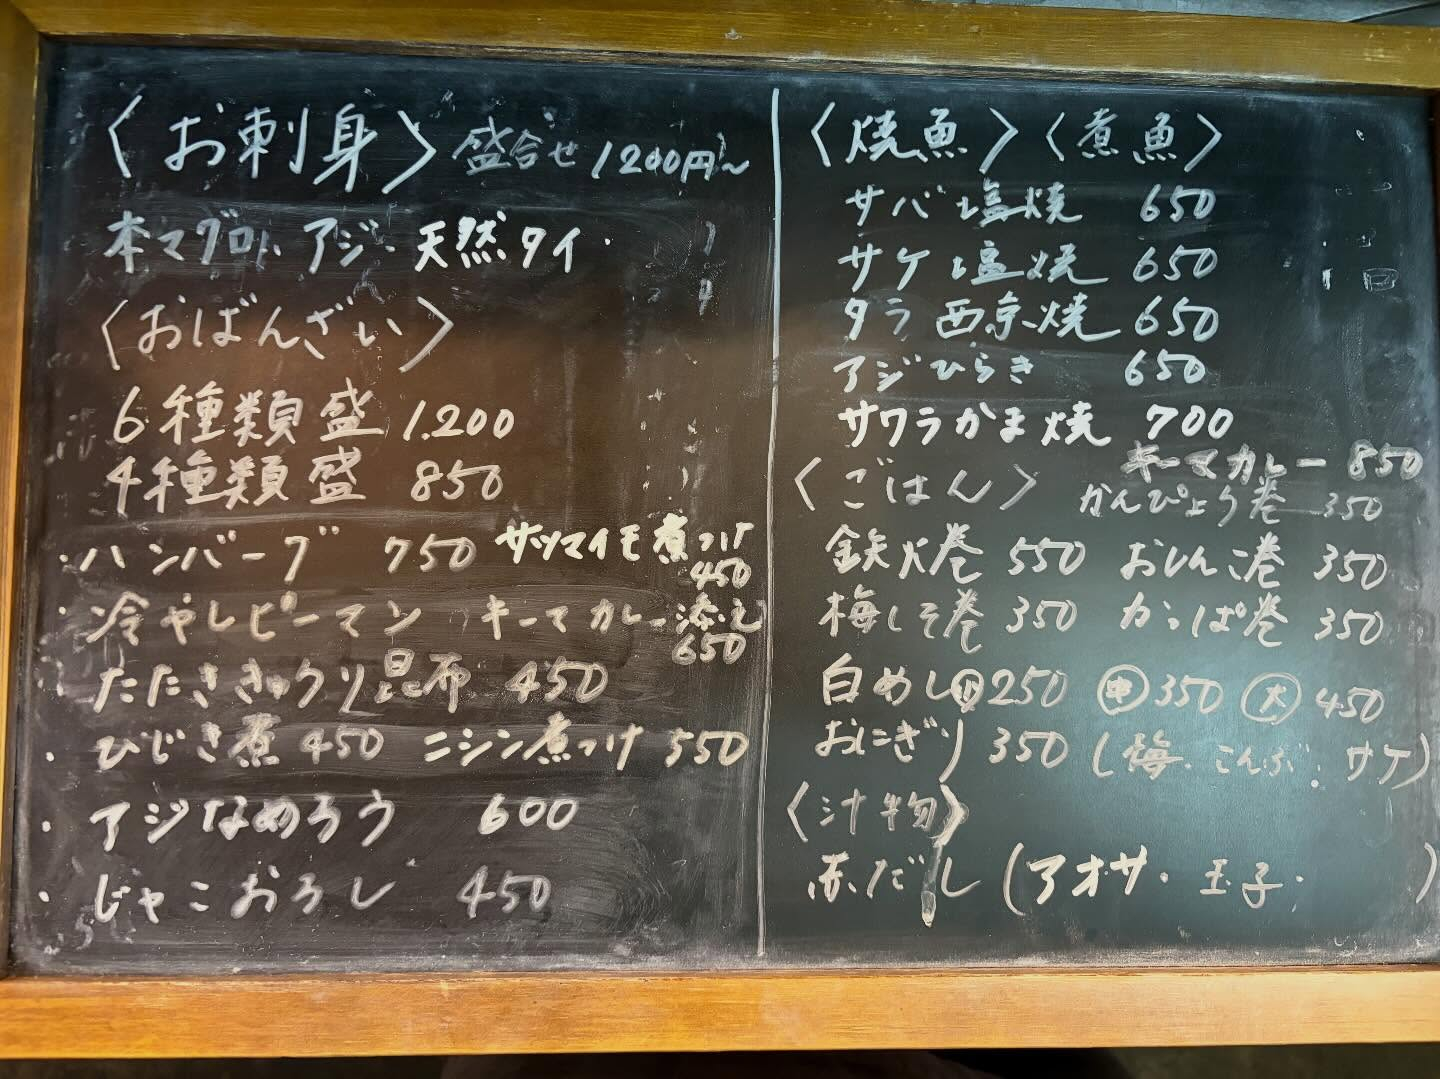 〈お刺身〉盛合せ 1200円〜
本マグロ、アジ・天然タイ・
〈おばんざい〉
6種類盛 1.200
4種類盛 850
・ハンバーグ 750 サツマイモ煮つけ
450
・冷やしピーマン キーマカレー添え
650
たたききゅうり昆布 450
・ひじき煮 450 ニシン煮つけ 550
・アジなめろう 600
・じゃこおろし 450
〈焼魚〉〈煮魚〉
サバ塩焼 650
サケ塩焼 650
タラ西京焼 650
アジひらき 650
サワラかま焼 700
キーマカレー 850
〈ごはん〉 かんぴょう巻 350
鉄火巻 550 おしんこ巻 350
梅しそ巻 350 かっぱ巻 350
白めし 小 250 中 350 大 450
おにぎり 350 (梅・こんぶ・サケ)
〈汁物〉
赤だし (アオサ・玉子・ )